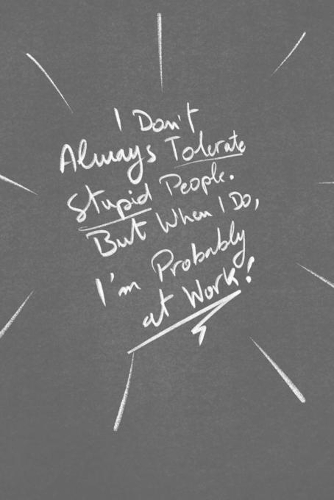 I Don't
Always Tolerate
Stupid People.
But When I Do,
I'm Probably
at Work!